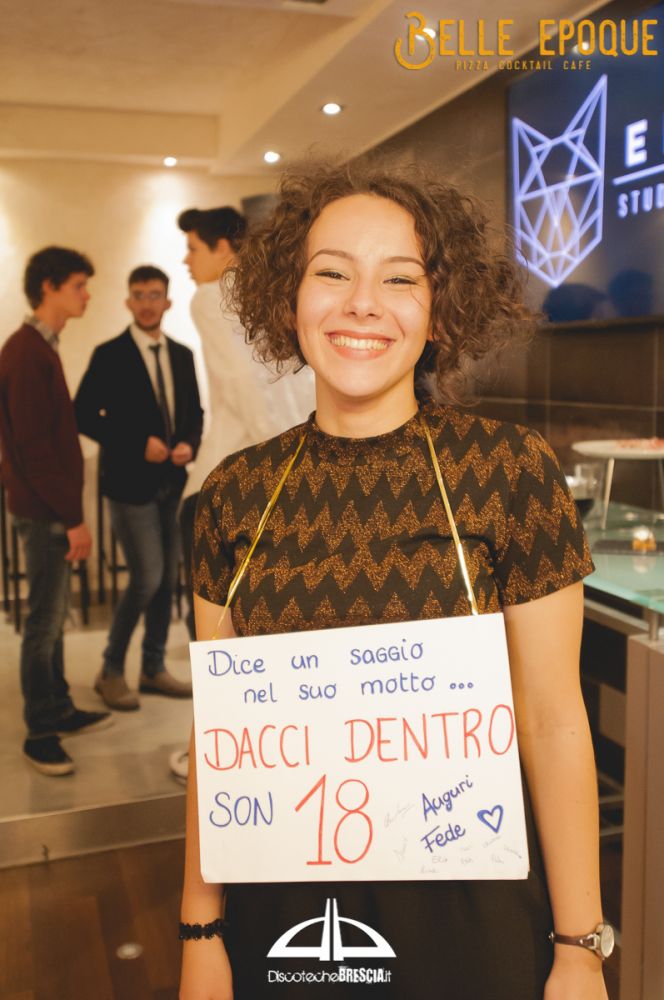 BELLE EPOQUE
PIZZA COCKTAIL CAFE
Dice un saggio
nel suo motto ...
DACCI DENTRO
SON 18
Auguri
Fede
DiscotecheBRESCIA.it